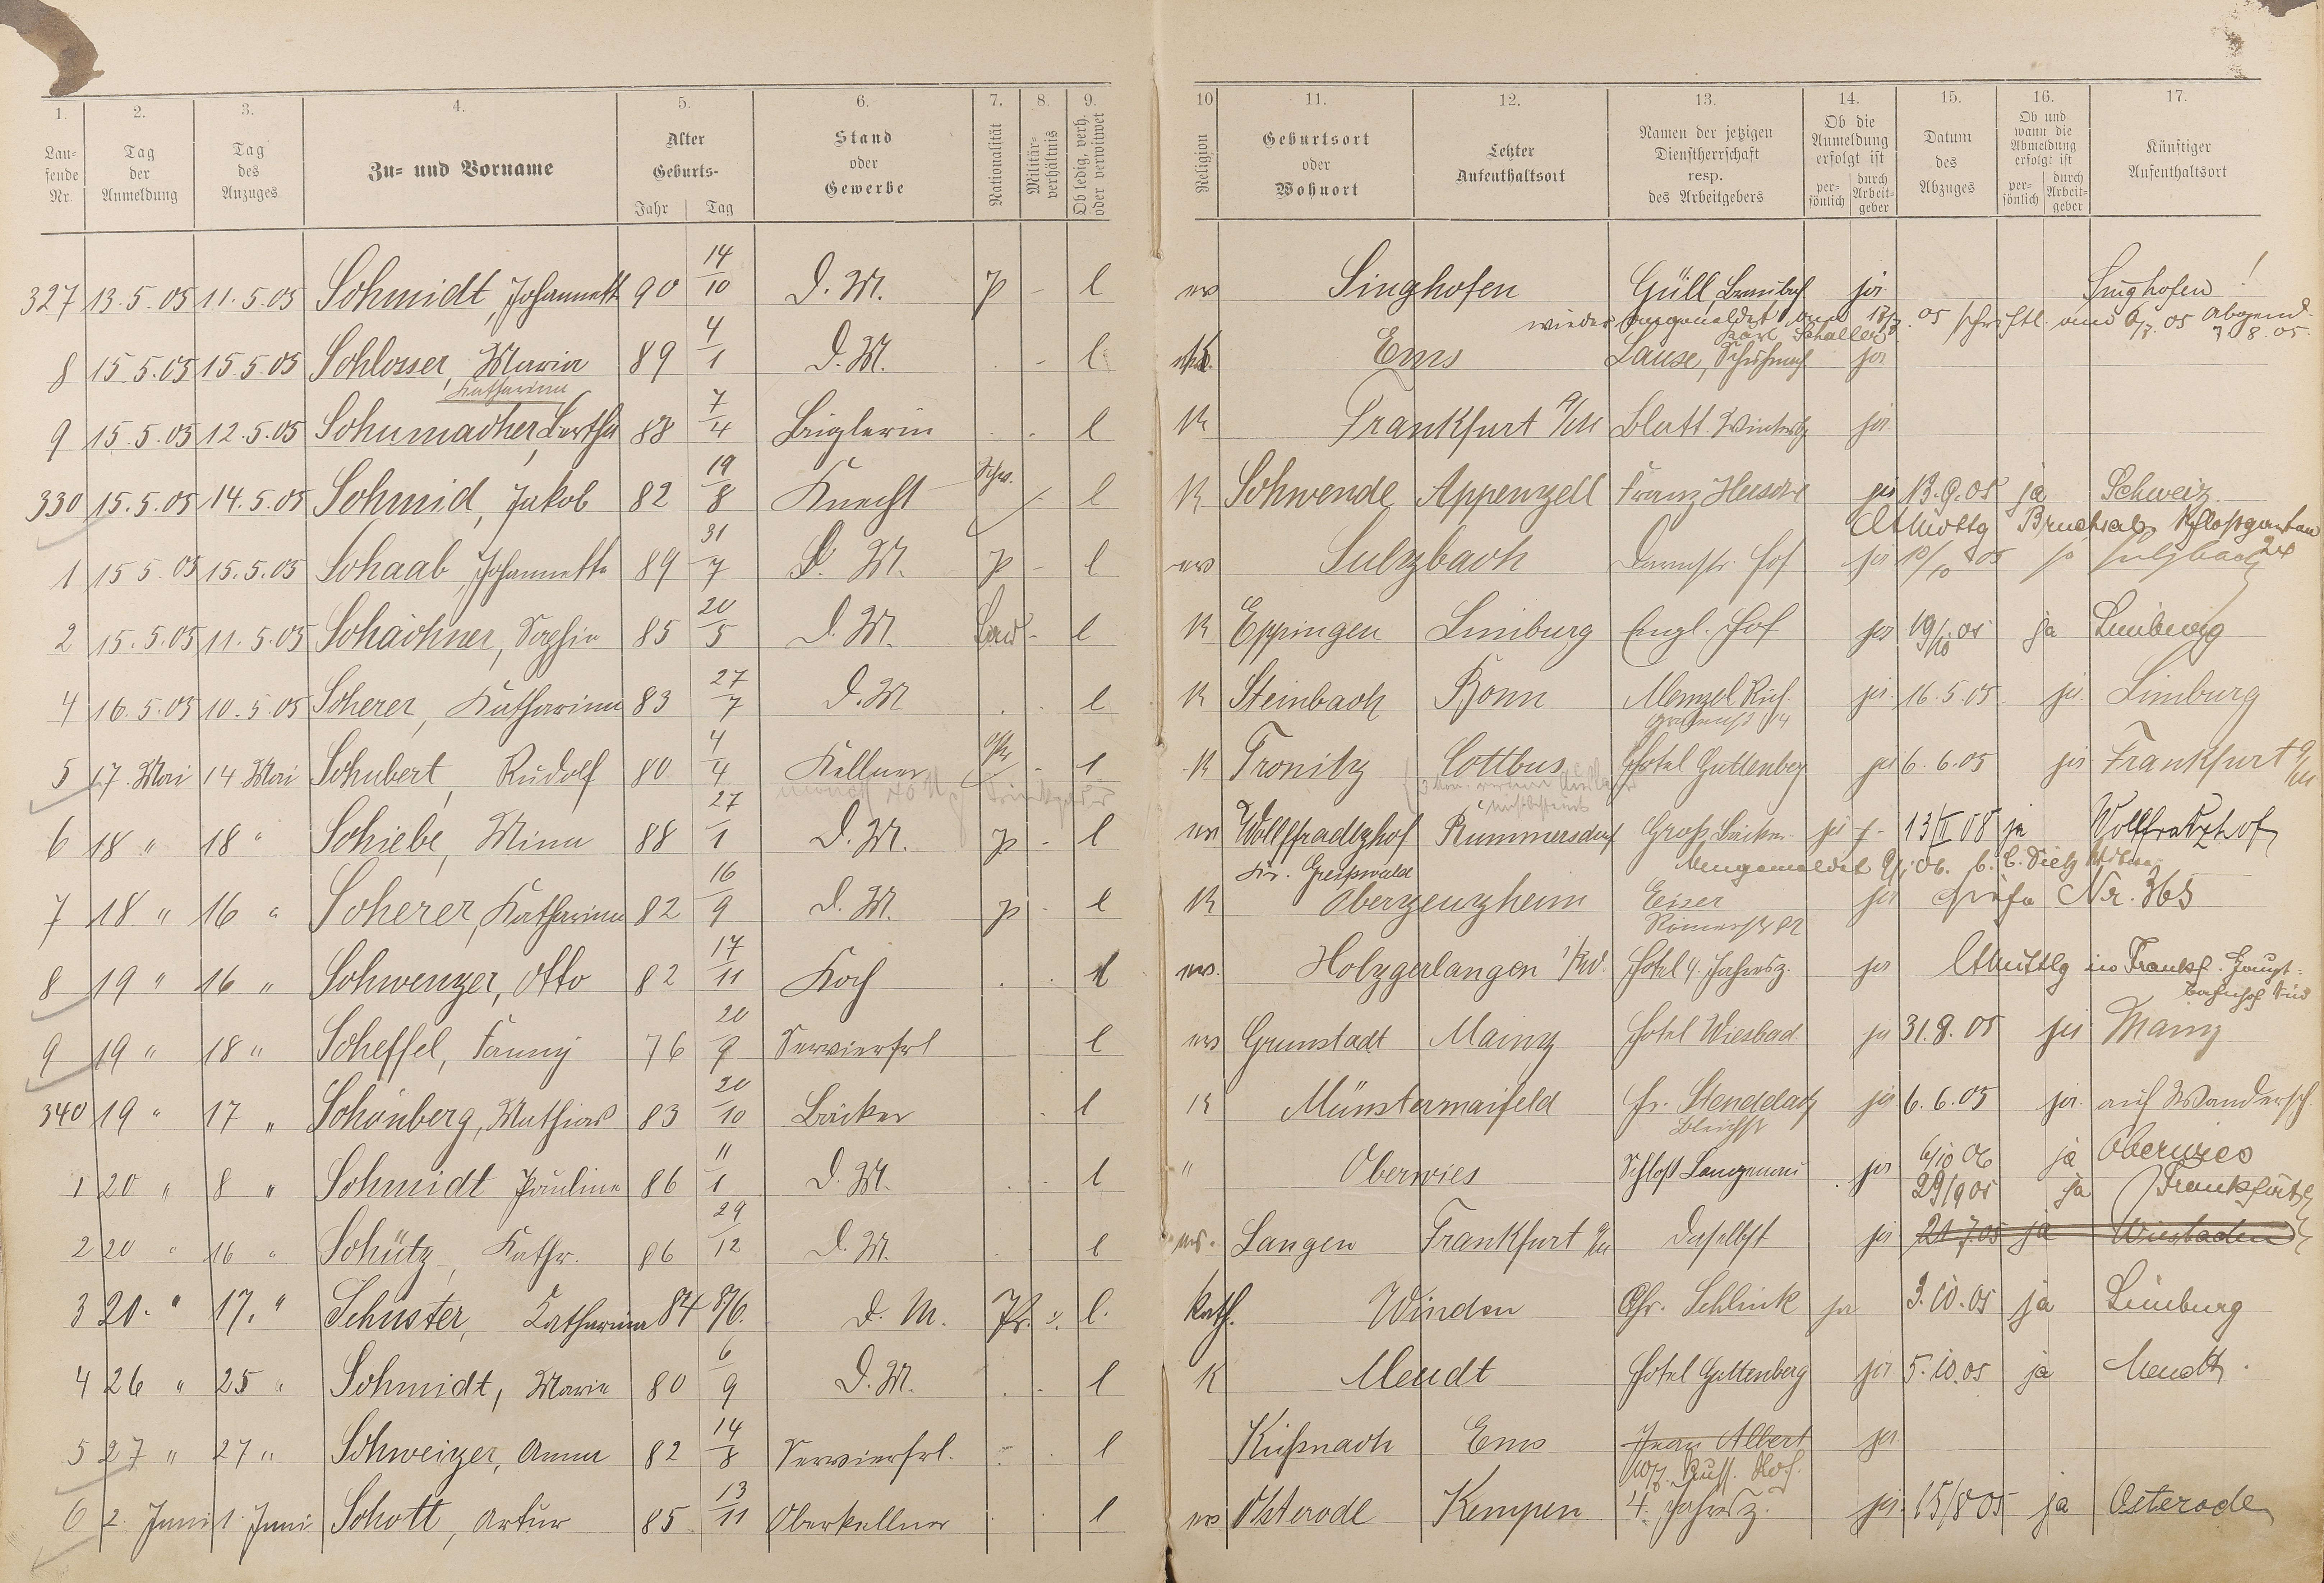 1. 2. 3. 4. 5. 6. 7. 8. 9. 10 11. 12. 13. 14. 15. 16. 17.
Lau-fende Nr. | Tag der Anmeldung | Tag des Anzuges | Zu- und Vorname | Alter Geburts- Jahr Tag | Stand oder Gewerbe | Nationalität | Militär-verhältnis | Ob ledig, verh. oder verwitwet | Religion | Geburtsort oder Wohnort | Letzter Aufenthaltsort | Namen der jetzigen Dienstherrschaft resp. des Arbeitgebers | Ob die Anmeldung erfolgt ist per-sönlich durch Arbeit-geber | Datum des Abzuges | Ob und wann die Abmeldung erfolgt ist per-sönlich durch Arbeit-geber | Künftiger Aufenthaltsort
327 13.5.05 11.5.05 Schmidt, Johannette 90 14/10 D.M. p - l ev Singhofen Güll ja Singhofen!
wieder angemeldet am
Karl Schaller
8 15.5.05 15.5.05 Schlosser, Maria 89 4/1 D.M. - l Ems Lause, Schuhmach ja
Katharina
9 15.5.05 12.5.05 Schumacher, Bertha 88 7/4 Büglerin l K Frankfurt a/M Blatt. Wintersbg ja
330 15.5.05 14.5.05 Schmid, Jakob 82 19/8 Knecht Schw. l K Schwende Appenzell Franz Hersche ja 13.9.05 ja Schweiz
Bruchsal Schloßgarten
24
1 15 5.05 15.5.05 Schaab, Johannette 89 31/7 D. M. p - l ev Sulzbach Darmst. Hof ja 10/10 05 ja Sulzbach
2 15.5.05 11.5.05 Schächner, Sophie 85 20/5 D.M. Bad - l K Eppingen Limburg Engl. Hof ja 19/10 05 ja Limburg
4 16.5.05 10.5.05 Scherer, Katharina 83 27/7 D.M l K Steinbach Bonn Menzel ja 16.5.05 ja Limburg
5 17. Mai 14 Mai Schubert, Rudolf 80 4/4 Kellner l K Tronitz Cottbus Hotel Guttenberg ja 6.6.05 ja Frankfurt a/M
6 18 " 18 " Schiebe, Minna 88 27/1 D.M. p - l ev Wollffradtzhof Rummersdorf Groß, Bäcker ja 13/II 08 ja Wolffratzhof
Kr. Greifswald
7 18 " 16 " Scherer, Katharina 82 16/9 D.M. p - l K Oberzeuzheim Eiser ja siehe Nr. 365
Römerstr 82
8 19 " 16 " Schwenzer, Otto 82 17/11 Koch l ev. Holzgerlangen Hotel 4 Jahresz. ja in Frankf. Haupt-
bahnhof Süd
9 19 " 18 " Scheffel, Fanny 76 20/9 Servierfrl l ev Grunstadt Mainz Hotel Wiesbad. ja 31.8.05 ja Mainz
340 19 " 17 " Schönberg, Mathias 83 20/10 Bäcker l K Münstermaifeld Fr. ja 6.6.05 ja auf Wandersch
Bleichst
1 20 " 8 " Schmidt Pauline 86 11/1 D.M. l " Oberwies Schloß Langenau ja 6/10 06 ja Oberwies
29/9 05 ja Frankfurt
2 20 " 16 " Schütz, Kathr. 86 29/12 D.M. l ev. Langen Frankfurt a/M Daselbst ja 21 7.05 ja Wiesbaden
3 20. " 17. " Schuster, Katharina 84 8/6. D. M. Pr. l. Kath. Winden Chr. Schlink ja 3.10.05 ja Limburg
4 26 " 25 " Schmidt, Maria 80 6/9 D.M. l K Meudt Hotel Guttenberg ja 5.10.05 ja Meudt.
5 27 " 27 " Schweizer, Anna 82 14/8 Servierfrl. l Küßnach Ems Jean Albert ja
Russ. Hof.
6 2. Juni 1. Juni Schott, Artur 85 13/11 Oberkellner l ev Osterode Kempen 4. Jahresz. ja 15/8 05 ja Osterode